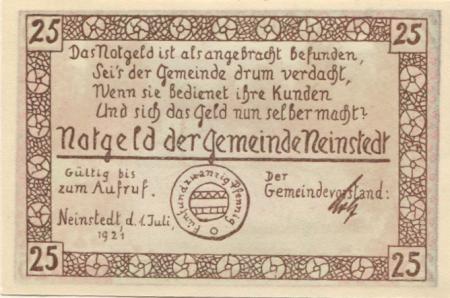 25 25
Das Notgeld ist als angebracht befunden,
Sei's der Gemeinde drum verdacht,
Wenn sie bedienet ihre Kunden
Und sich das Geld nun selber macht?
Notgeld der Gemeinde Neinstedt
Gültig bis
zum Aufruf.
Neinstedt, d. 1. Juli,
1921
Fünfundzwanzig Pfennig
Der
Gemeindevorstand:
25 25